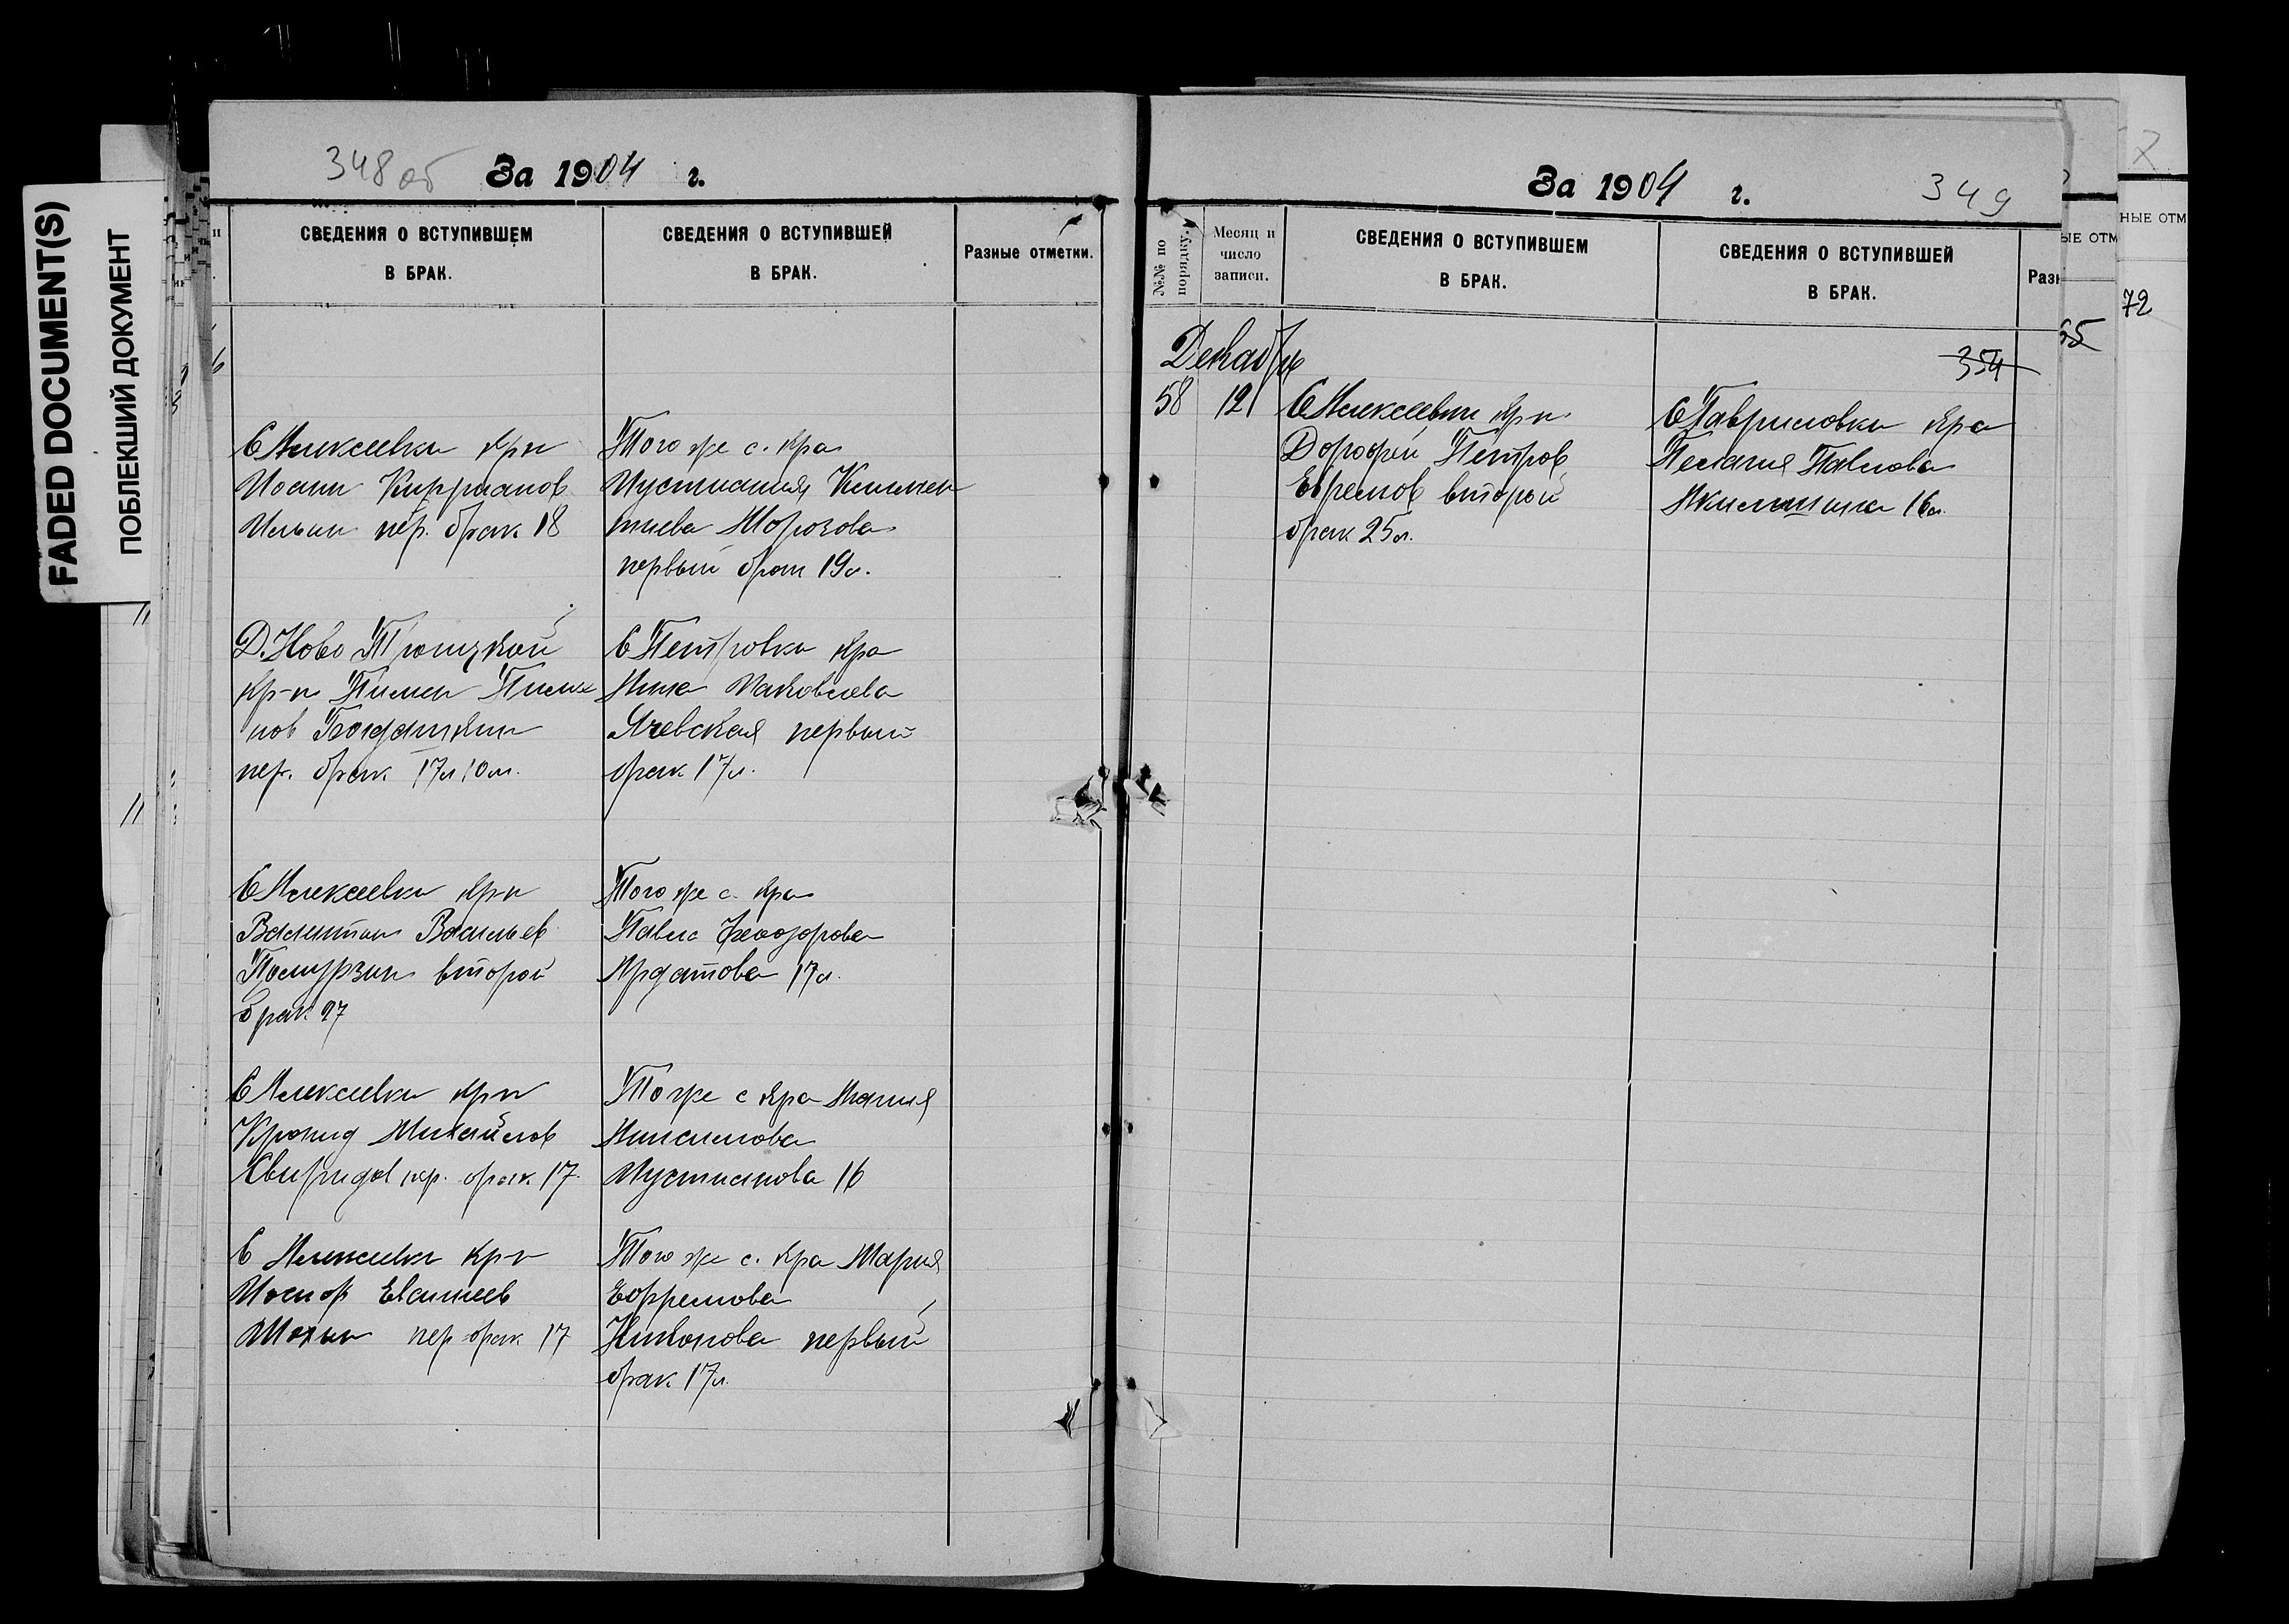 FADED DOCUMENT(S)
ПОБЛЕКШИЙ ДОКУМЕНТ
348 об
За 1904 г.
СВЕДЕНИЯ О ВСТУПИВШЕМ
В БРАК.
СВЕДЕНИЯ О ВСТУПИВШЕЙ
В БРАК.
Разные отметки.
С Алексеевки кр-н
Иоанн Киприанов
Ильин пер. брак 18
Того же с. кра
Иустиания Климен
тиева Морозова
первый брак 19 л.
Д. Ново Троицкой
кр-н Пимен Пиме
нов
пер. брак 17 л 10 м.
С Петровки кра
Анна Иаковлева
Ячевская первый
брак 17 л.
С Алексеевки кр-н
Валентин Васильев
второй
брак 27
Того же с. кра
Павла Феодорова
Ардатова 17 л.
С Алексеевки кр-н
Кронид Михайлов
Свиридов пер. брак 17
То же с кра Мария
Иустианова 16
С Алексеевки кр-н
Иосиф Евсигнеев
Шохин пер брак 17
Того же с. кра Мария
Ефремова
Никонова первый
брак 17 л.
За 1904 г.
349
№№ по порядку.
Месяц и
число
записи.
СВЕДЕНИЯ О ВСТУПИВШЕМ
В БРАК.
СВЕДЕНИЯ О ВСТУПИВШЕЙ
В БРАК.
Разн
Декабрь
354
58 12
С Алексеевки кр-н
Дорофей Петров
Ефремов второй
брак 25 л.
С Гавриловки кра
Пелагия Павлова
16 л.
НЫЕ ОТМ
ЫЕ ОТМ
72